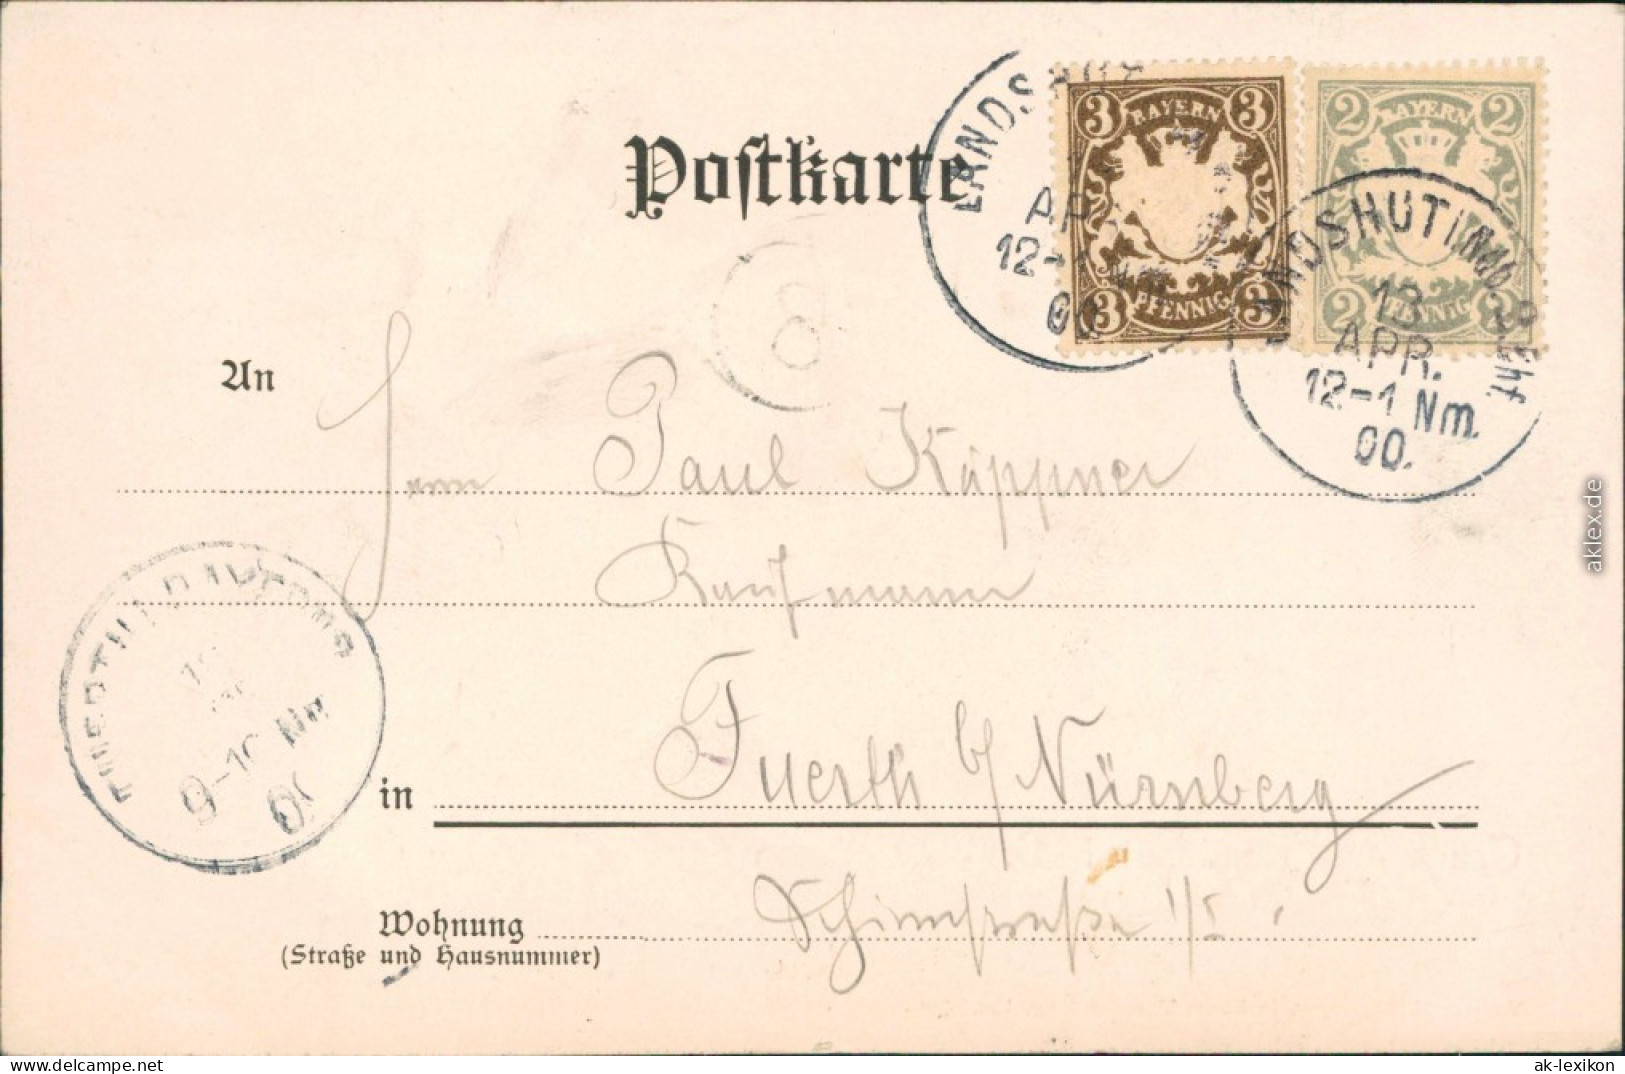 Postkarte
3 BAYERN 3
3 PFENNIG 3
2 BAYERN 2
2 PFENNIG 2
LANDSHUT
APR
12-1
00
LANDSHUT
13
APR.
12-1 Nm.
00.
8
An
Herrn Paul Käppner
Kaufmann
in Fuerth b/ Nürnberg
Wohnung
(Straße und Hausnummer)
9-10 Nm
00
aklex.de
www.delcampe.net
ak-lexikon